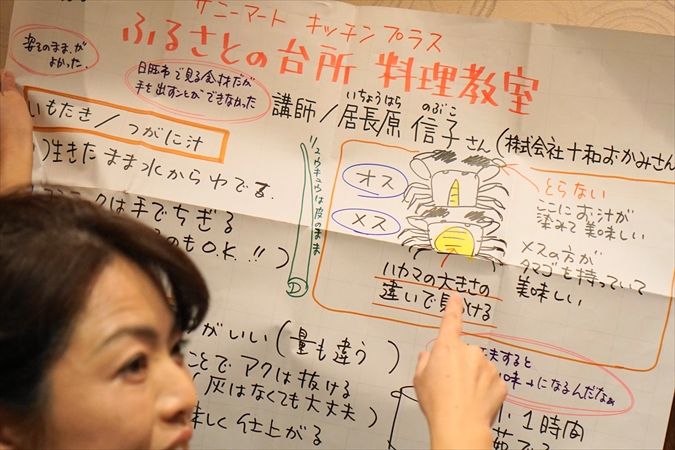 サニーマート キッチンプラス
ふるさとの台所 料理教室
姿そのまま、が
よかった。
日曜市で見る食材だが
手を出すことができなかった
いちょうはら のぶこ
講師/居長原 信子さん(株式会社十和おかみさん
いもたき/つがに汁
)生きたまま水からゆでる。
は手でちぎる
のもO.K.!!)
リュウキュウは皮のまま
オス
メス
とらない
ここにお汁が
染みて美味しい
メスの方が
タマゴも持っていて
美味しい
ハカマの大きさの
違いで見分ける
がいい(量も違う)
ことでアクは抜ける
灰はなくても大丈夫)
しく仕上がる
夫すると
味になるんだなぁ
1時間